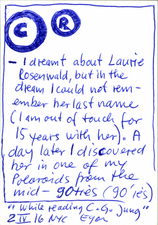 C R
— I dreamt about Laurie
Rosenwald, but in the
dream I could not rem-
ember her last name
(I am out of touch for
15 years with her). A
day later I discovered
her in one of my
Polaroids from the
mid-90ties (90'ies)
"While reading C.G. Jung"
2 IV 16 NYC